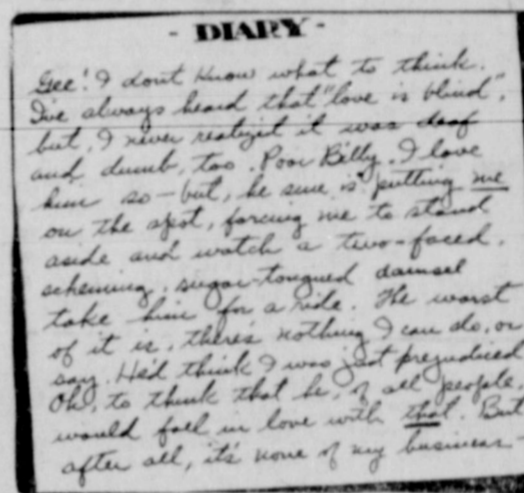 - DIARY -
Gee! I don't know what to think.
I've always heard that "love is blind",
but, I never realized it was deaf
and dumb, too. Poor Billy. I love
him so - but, he sure is putting me
on the spot, forcing me to stand
aside and watch a two-faced,
scheming, sugar-tongued damsel
take him for a ride. The worst
of it is, there's nothing I can do, or
say. He'd think I was just prejudiced
Oh, to think that he, of all people,
would fall in love with that. But
after all, it's none of my business -